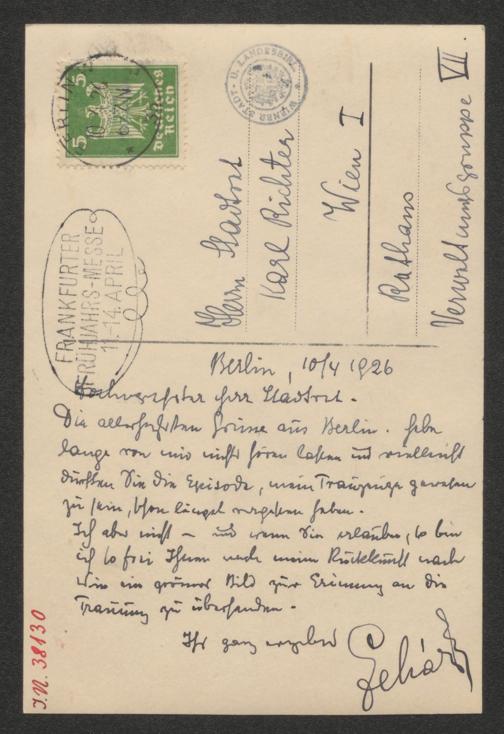 5 5
Deutsches
Reich
BERLIN
10.4.26
WIENER STADT- U. LANDESBIBL.
FRANKFURTER
FRÜHJAHRS-MESSE
11.-14. APRIL
Herrn Stadtrat
Karl Richter
Wien I
Rathaus
Verwaltungsgruppe VII.
Berlin, 10/4 1926
Hochverehrter Herr Stadtrat.
Die allerherzlichsten Grüsse aus Berlin. Habe
lange von mir nichts hören lassen und vielleicht
dürften Sie die Episode, mein Trauzeuge gewesen
zu sein, schon längst vergessen haben.
Ich aber nicht – und wenn Sie erlauben, so bin
ich so frei Ihnen nach meiner Rückkunft nach
Wien ein grosses Bild zur Erinnerung an die
Trauung zu übersenden.
Ihr ganz ergebener Lehár
I.N. 38130